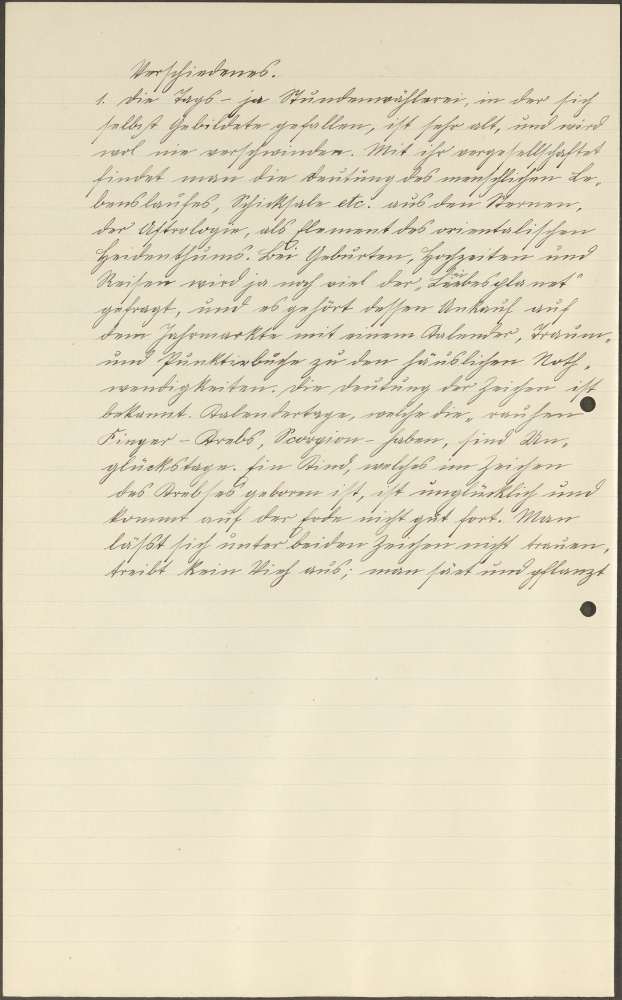 Verschiedenes.
1. Die Tags- ja Stundenwählerei, in der sich
selbst Gebildete gefallen, ist sehr alt, und wird
wol nie verschwinden. Mit ihr vergesellschaftet
findet man die Deutung des menschlichen Le„
benslaufes, Schicksale etc. aus den Sternen,
der Astrologie, als Element des orientalischen
Heidenthums. Bei Geburten, Hochzeiten und
Reisen wird ja noch viel der „Liebesplanet"
gefragt, und es gehört dessen Ankauf auf
dem Jahrmarkte mit einem Kalender, Traum„
und Punktirbuche zu den häuslichen Noth„
wendigkeiten. Die Deutung der Zeichen ist
bekannt. Kalendertage, welche die „rauhen"
Finger - Krebs, Scorpion - haben, sind Un„
glückstage. Ein Kind, welches im Zeichen
des Krebses geboren ist, ist unglücklich und
kommt auf der Erde nicht gut fort. Man
läßt sich unter beiden Zeichen nicht trauen,
treibt kein Vieh aus; man säet und pflanzt